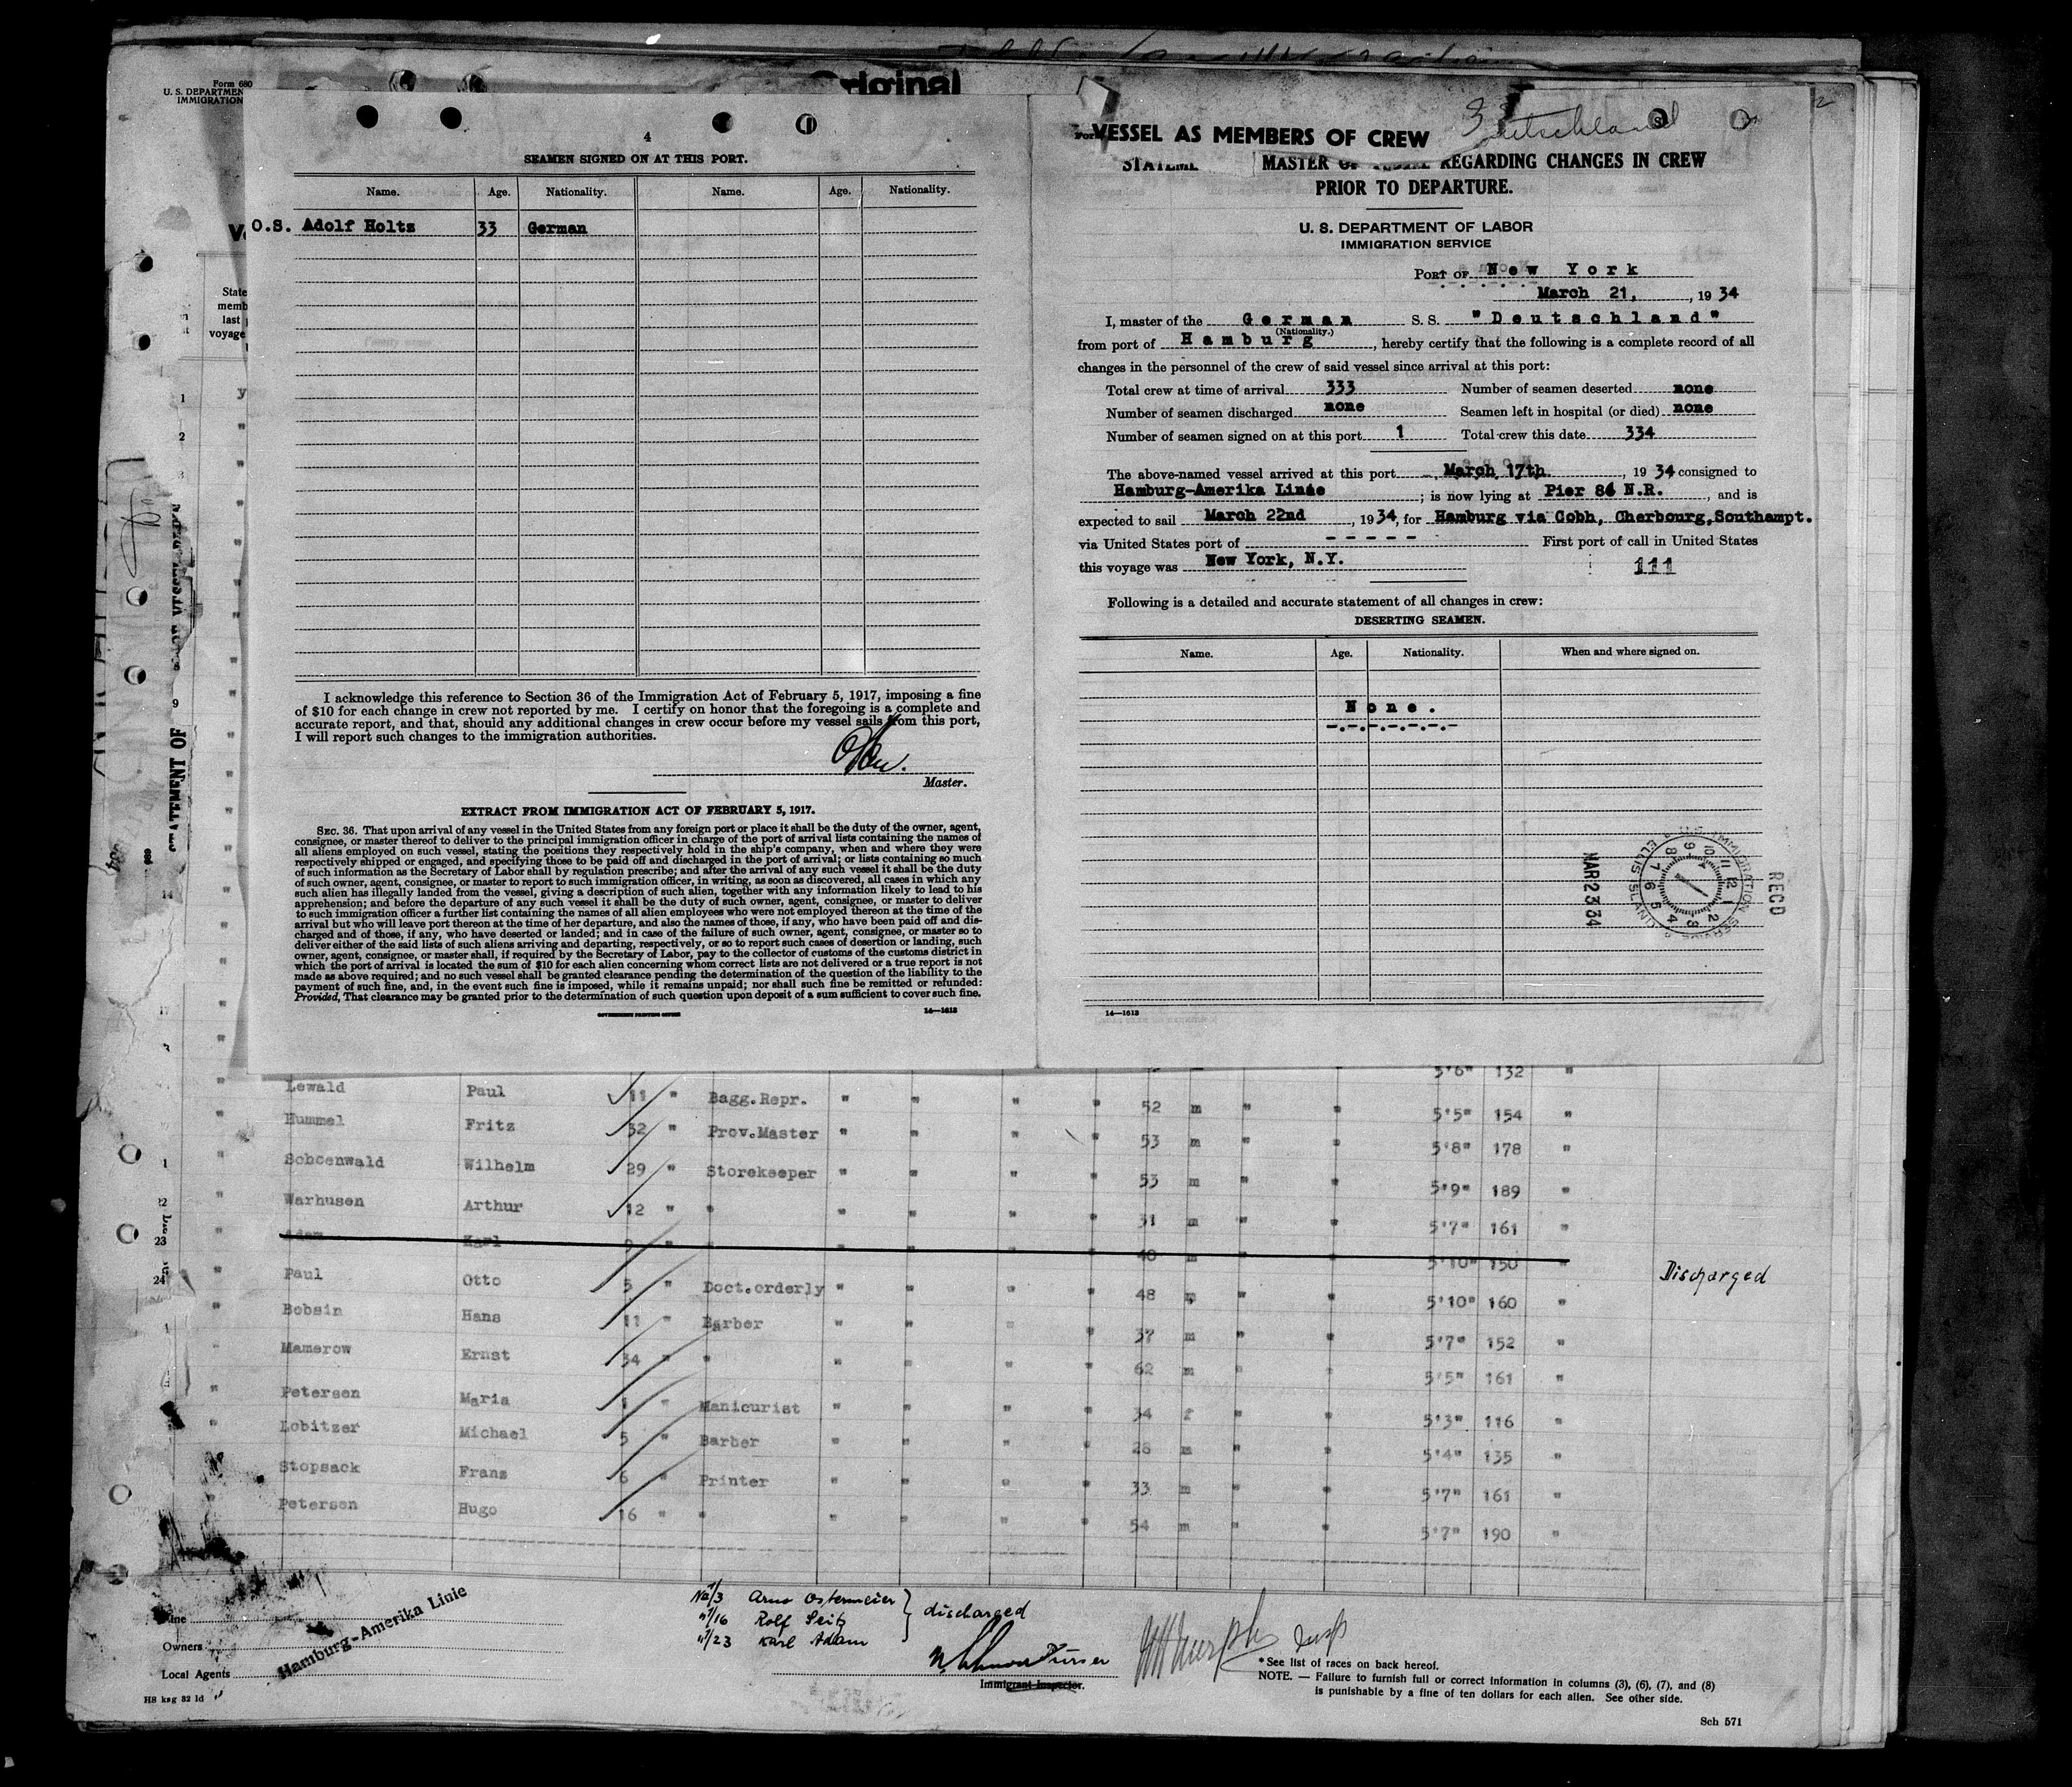 Form 680
U. S. DEPARTMEN
IMMIGRATION
Original
4
SEAMEN SIGNED ON AT THIS PORT.
Name. Age. Nationality. Name. Age. Nationality.
O.S. Adolf Holtz 33 German
I acknowledge this reference to Section 36 of the Immigration Act of February 5, 1917, imposing a fine
of $10 for each change in crew not reported by me. I certify on honor that the foregoing is a complete and
accurate report, and that, should any additional changes in crew occur before my vessel sails from this port,
I will report such changes to the immigration authorities.
Master.
EXTRACT FROM IMMIGRATION ACT OF FEBRUARY 5, 1917.
SEC. 36. That upon arrival of any vessel in the United States from any foreign port or place it shall be the duty of the owner, agent,
consignee, or master thereof to deliver to the principal immigration officer in charge of the port of arrival lists containing the names of
all aliens employed on such vessel, stating the positions they respectively hold in the ship's company, when and where they were
respectively shipped or engaged, and specifying those to be paid off and discharged in the port of arrival; or lists containing so much
of such information as the Secretary of Labor shall by regulation prescribe; and after the arrival of any such vessel it shall be the duty
of such owner, agent, consignee, or master to report to such immigration officer, in writing, as soon as discovered, all cases in which any
such alien has illegally landed from the vessel, giving a description of such alien, together with any information likely to lead to his
apprehension; and before the departure of any such vessel it shall be the duty of such owner, agent, consignee, or master to deliver
to such immigration officer a further list containing the names of all alien employees who were not employed thereon at the time of the
arrival but who will leave port thereon at the time of her departure, and also the names of those, if any, who have been paid off and dis-
charged and of those, if any, who have deserted or landed; and in case of the failure of such owner, agent, consignee, or master so to
deliver either of the said lists of such aliens arriving and departing, respectively, or so to report such cases of desertion or landing, such
owner, agent, consignee, or master shall, if required by the Secretary of Labor, pay to the collector of customs of the customs district in
which the port of arrival is located the sum of $10 for each alien concerning whom correct lists are not delivered or a true report is not
made as above required; and no such vessel shall be granted clearance pending the determination of the question of the liability to the
payment of such fine, and, in the event such fine is imposed, while it remains unpaid; nor shall such fine be remitted or refunded:
Provided, That clearance may be granted prior to the determination of such question upon deposit of a sum sufficient to cover such fine.
GOVERNMENT PRINTING OFFICE 14—1613
VESSEL AS MEMBERS OF CREW Deutschland
STATEME MASTER OF REGARDING CHANGES IN CREW
PRIOR TO DEPARTURE.
U. S. DEPARTMENT OF LABOR
IMMIGRATION SERVICE
PORT OF New York
March 21, , 19 34
I, master of the German S. S. "Deutschland"
(Nationality.)
from port of Hamburg , hereby certify that the following is a complete record of all
changes in the personnel of the crew of said vessel since arrival at this port:
Total crew at time of arrival 333 Number of seamen deserted none
Number of seamen discharged none Seamen left in hospital (or died) none
Number of seamen signed on at this port 1 Total crew this date 334
The above-named vessel arrived at this port March 17th , 19 34 consigned to
Hamburg-Amerika Linie ; is now lying at Pier 84 N.R. , and is
expected to sail March 22nd , 19 34, for Hamburg via Cobh, Cherbourg,Southampt.
via United States port of - - - - - First port of call in United States
this voyage was New York, N.Y. 111
Following is a detailed and accurate statement of all changes in crew:
DESERTING SEAMEN.
Name. Age. Nationality. When and where signed on.
None.
RECD
MAR 23 34
U.S. IMMIGRATION SERVICE ELLIS ISLAND
14—1613
State
memb
last
voyage
STATEMENT OF
5'6" 132 "
" Lewald Paul 11 " Bagg.Repr. " " " " 52 m " " 5'5" 154 "
" Hummel Fritz 32 " Prov.Master " " " " 53 m " " 5'8" 178 "
" Schoenwald Wilhelm 29 " Storekeeper " " " " 53 m " " 5'9" 189 "
" Warhusen Arthur 12 " " " " " " 31 m " " 5'7" 161 "
23 " Adam Karl 9 " " " " " " 40 m " " 5'10" 150 " Discharged
24 " Paul Otto 5 " Doct.orderly " " " " 48 m " " 5'10" 160 "
" Bobsin Hans 11 " Barber " " " " 37 m " " 5'7" 152 "
" Mamerow Ernst 34 " " " " " " 62 m " " 5'5" 161 "
" Petersen Maria 1 " Manicurist " " " " 34 f " " 5'3" 116 "
" Lobitzer Michael 5 " Barber " " " " 28 m " " 5'4" 135 "
" Stopsack Franz 6 " Printer " " " " 33 m " " 5'7" 161 "
" Petersen Hugo 16 " " " " " " 54 m " " 5'7" 190 "
No 1/3 Arno Ostermeier
"1/16 Rolf Seitz } discharged
"1/23 Karl Adam
Line
Owners
Local Agents
Hamburg-Amerika Linie
Purser
Immigrant Inspector.
* See list of races on back hereof.
NOTE. — Failure to furnish full or correct information in columns (3), (6), (7), and (8)
is punishable by a fine of ten dollars for each alien. See other side.
H8 kag 32 1d
Sch 571